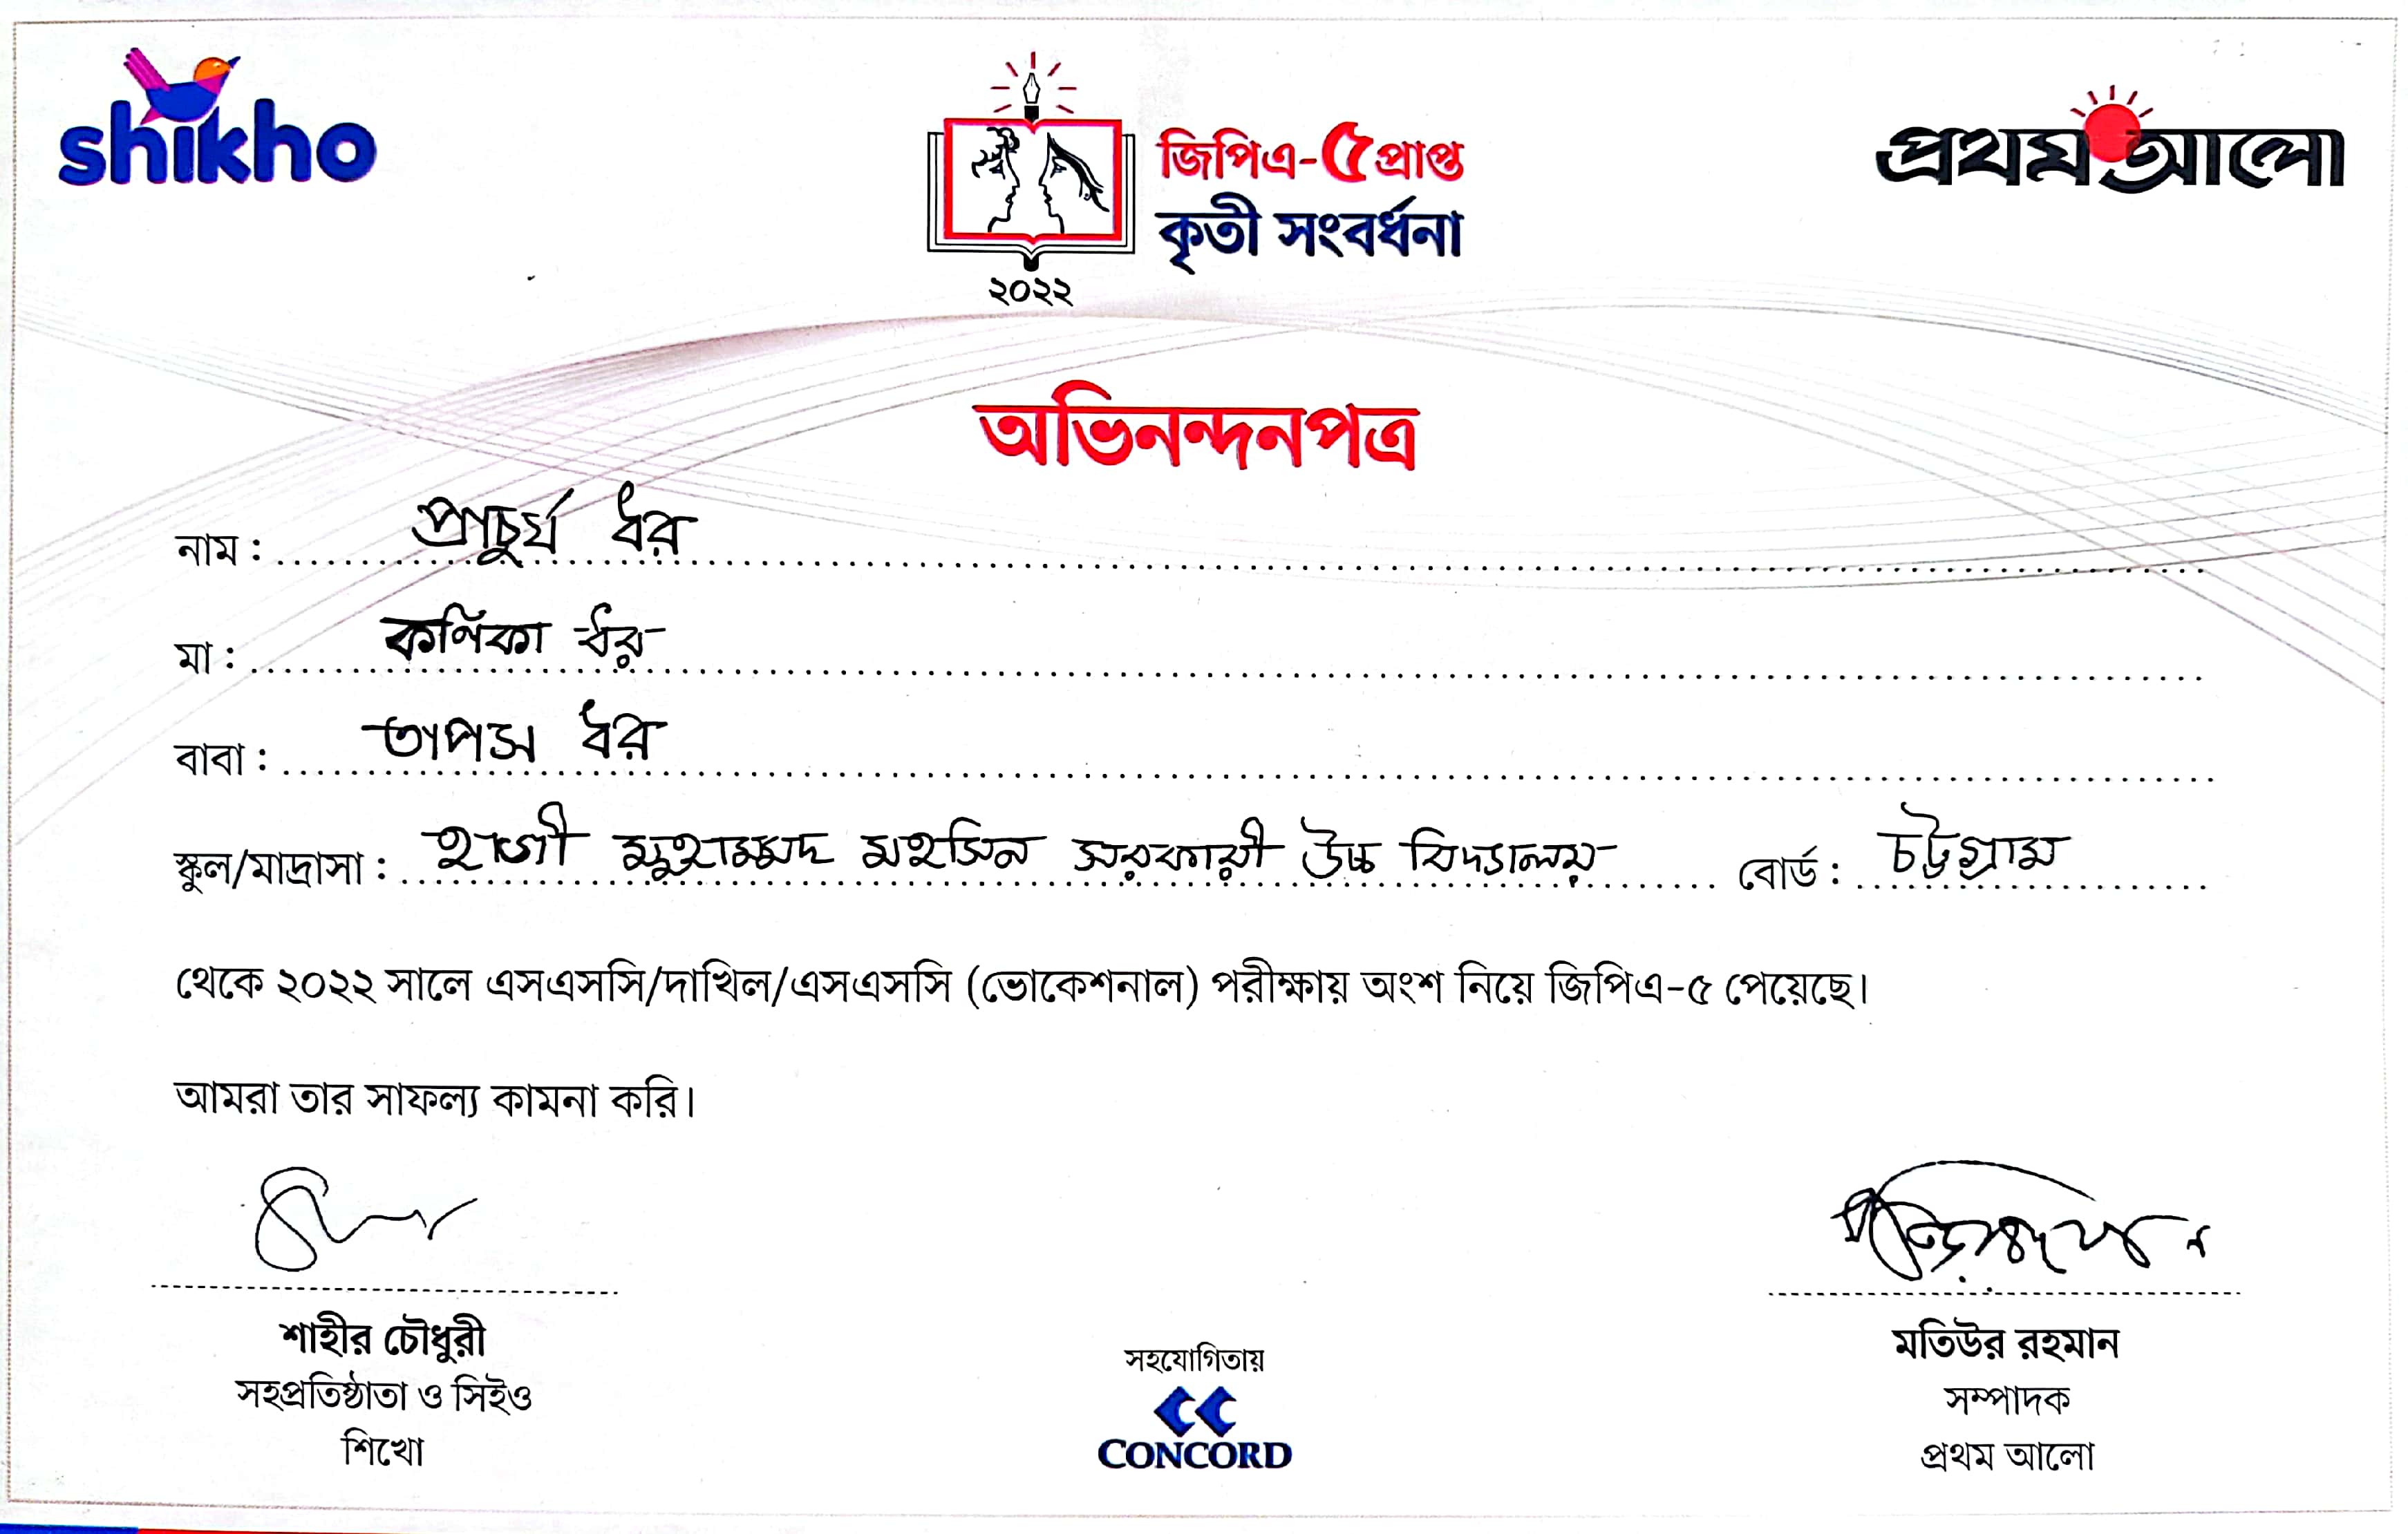 shikho
জিপিএ-৫ প্রাপ্ত
কৃতী সংবর্ধনা
২০২২
প্রথম আলো
অভিনন্দনপত্র
নাম : প্রাচুর্য ধর
মা : কনিকা ধর
বাবা : তাপস ধর
স্কুল/মাদ্রাসা : হাজী মুহাম্মদ মহসিন সরকারী উচ্চ বিদ্যালয় বোর্ড : চট্টগ্রাম
থেকে ২০২২ সালে এসএসসি/দাখিল/এসএসসি (ভোকেশনাল) পরীক্ষায় অংশ নিয়ে জিপিএ-৫ পেয়েছে।
আমরা তার সাফল্য কামনা করি।
শাহীর চৌধুরী
সহপ্রতিষ্ঠাতা ও সিইও
শিখো
সহযোগিতায়
CONCORD
মতিউর রহমান
সম্পাদক
প্রথম আলো